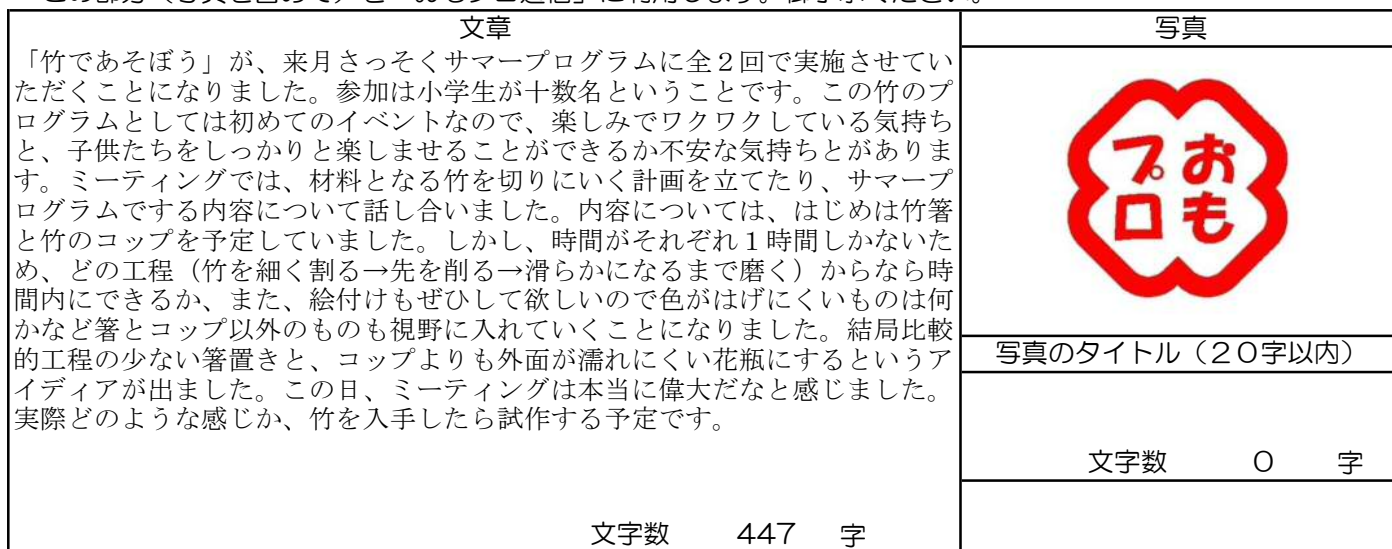 文章
「竹であそぼう」が、来月さっそくサマープログラムに全２回で実施させてい
ただくことになりました。参加は小学生が十数名ということです。この竹のプ
ログラムとしては初めてのイベントなので、楽しみでワクワクしている気持ち
と、子供たちをしっかりと楽しませることができるか不安な気持ちとがありま
す。ミーティングでは、材料となる竹を切りにいく計画を立てたり、サマープ
ログラムでする内容について話し合いました。内容については、はじめは竹箸
と竹のコップを予定していました。しかし、時間がそれぞれ１時間しかないた
め、どの工程（竹を細く割る→先を削る→滑らかになるまで磨く）からなら時
間内にできるか、また、絵付けもぜひして欲しいので色がはげにくいものは何
かなど箸とコップ以外のものも視野に入れていくことになりました。結局比較
的工程の少ない箸置きと、コップよりも外面が濡れにくい花瓶にするというア
イディアが出ました。この日、ミーティングは本当に偉大だなと感じました。
実際どのような感じか、竹を入手したら試作する予定です。
文字数 447 字
写真
おも
プロ
写真のタイトル（２０字以内）
文字数 0 字